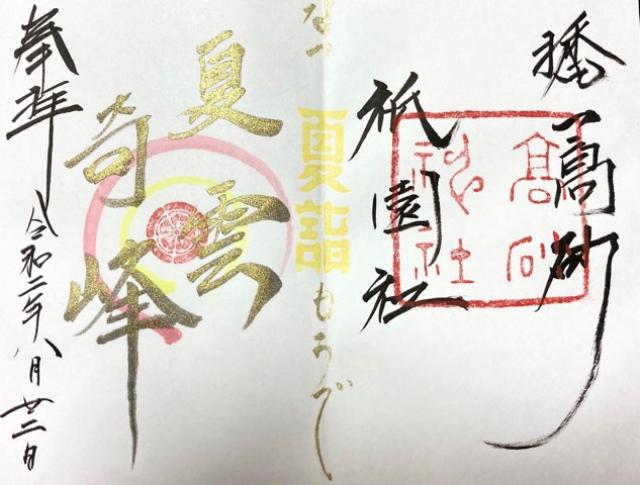 播 高砂
祇園社
高砂
神社
なつ
夏詣
もうで
夏雲
奇峰
奉拝
令和二年八月廿二日